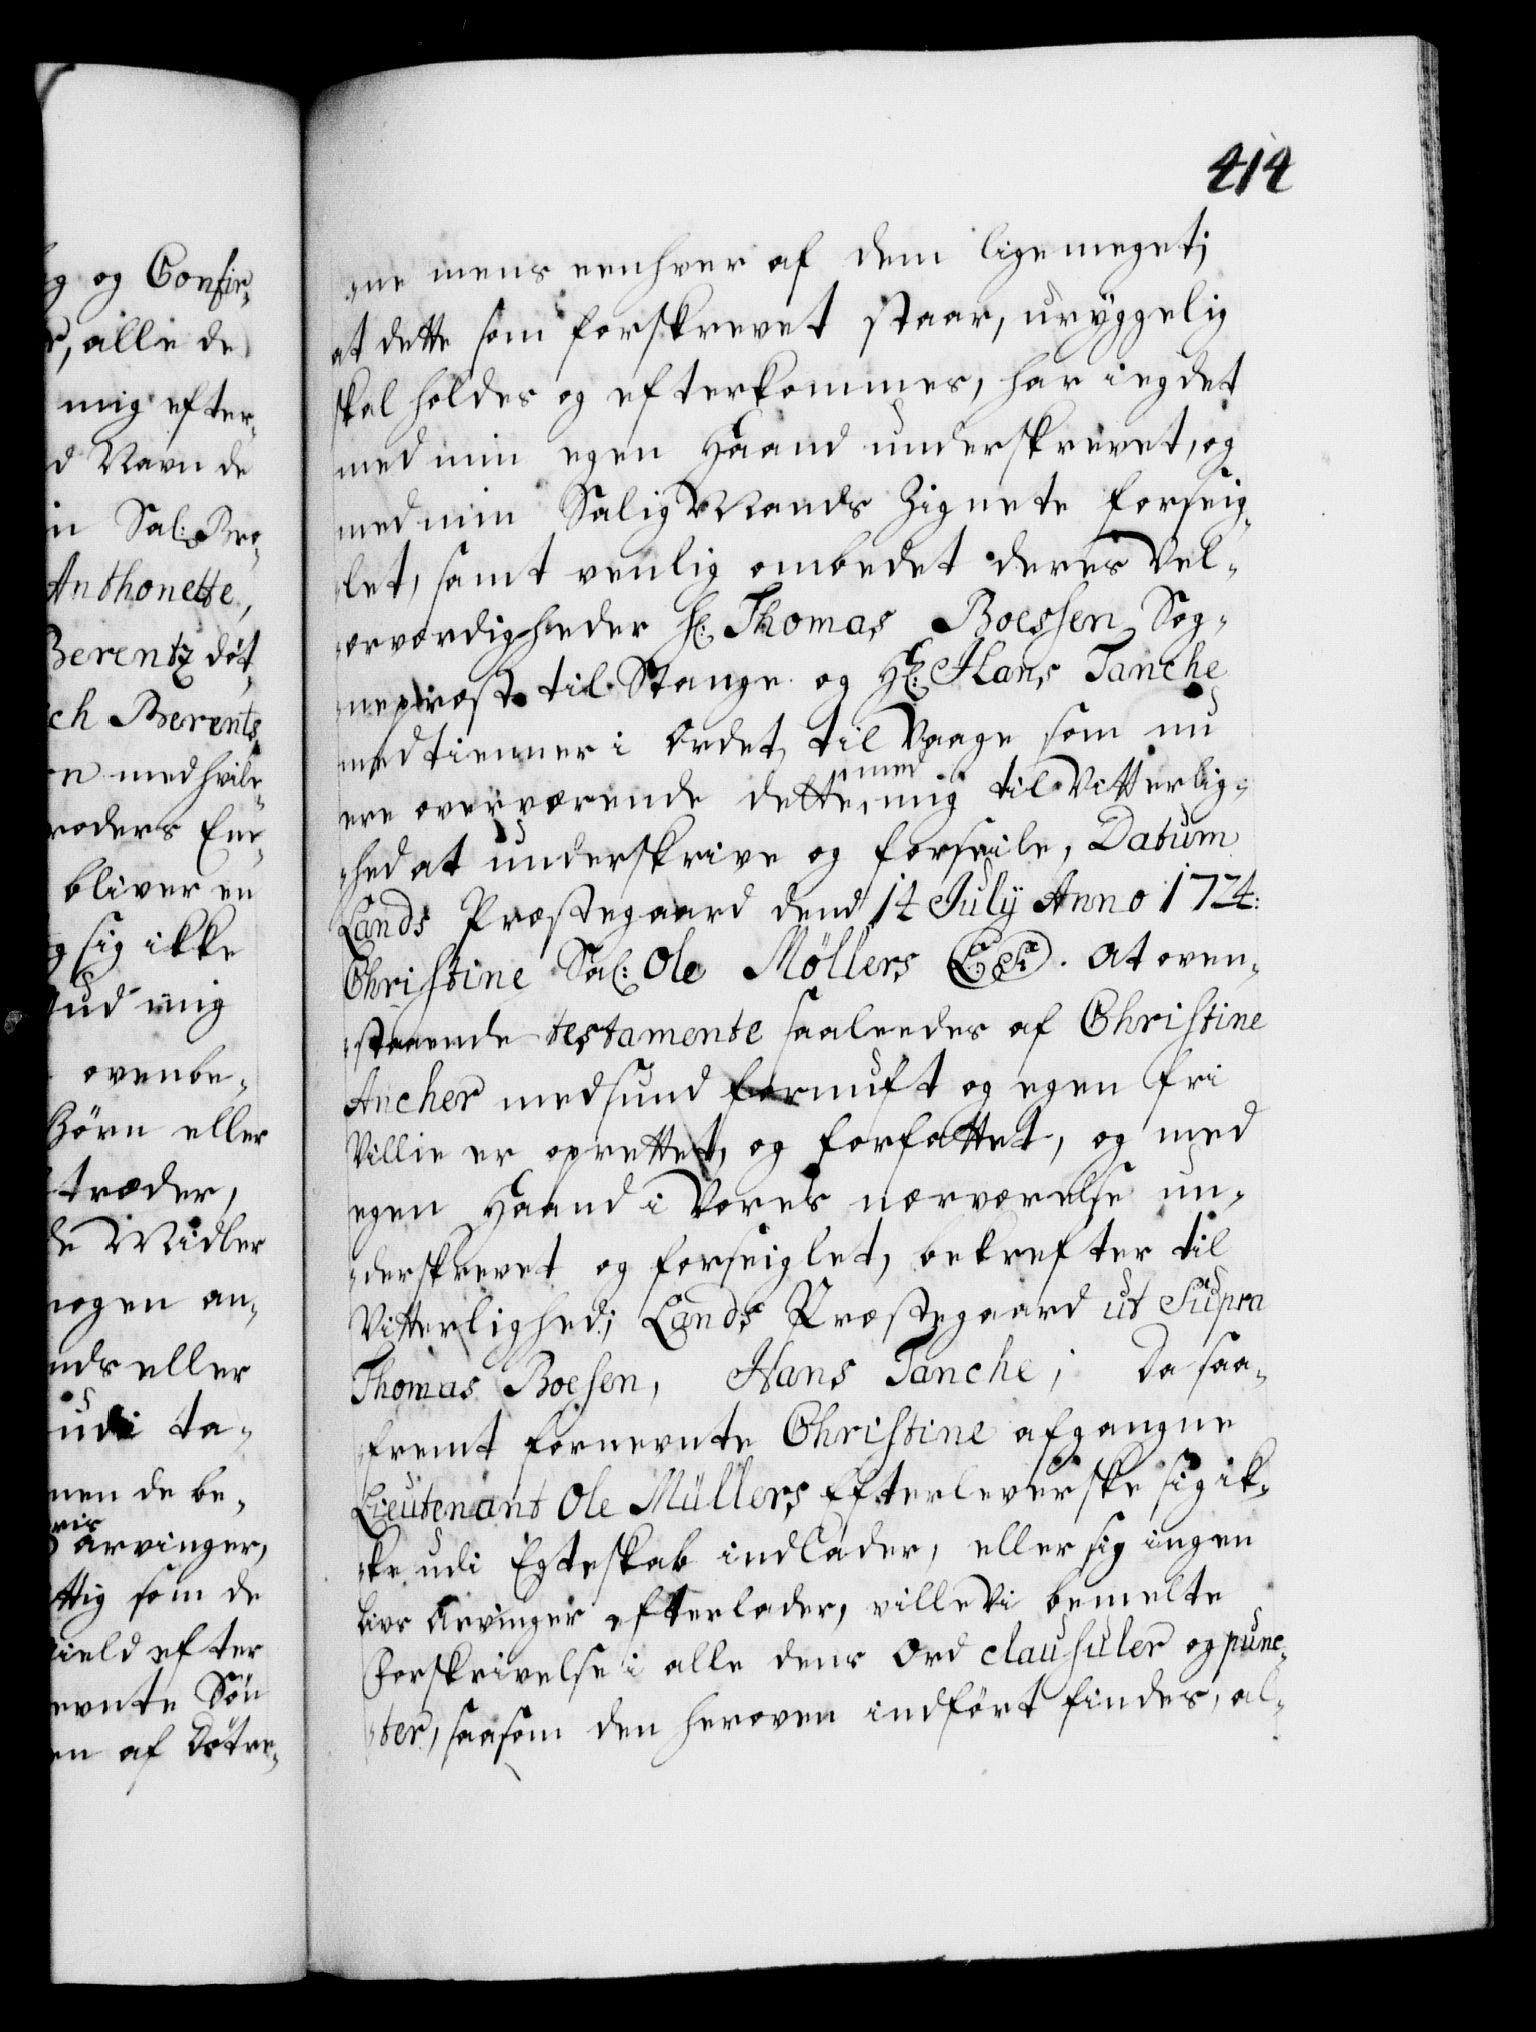 g og Confir-
r, alle de
mig efter-
d Navn de
in Sal: Bro-
Anthonette,
Berentz döt-
ch Berents
n med hvile
roders Ene-
bliver en
g sig ikke
Gud mig
ovenbe-
Börn eller
træder,
de Midler
nogen an-
nds eller
udi ta-
men de be-
vis
Arvinger,
ttig som de
ield efter
evnte Sön
en af Döttre-
414
ne mens eenhver af dem ligemeget;
at dette som forskrevet staar, uryggelig
skal holdes og efterkommes, har ieg det
med min egen Haand underskrevet, og
med min Salig Mands Zignete forseig-
let, samt venlig ombedet deres Vel-
ærværdigheder H: Thomas Boessen Sog-
nepræst til Stange og H: Hans Tanche
medtienner i Ordet til Vaage som nu
ere overværende dette, med mig til Vitterlig-
hed at underskrive og forseile, Datum
Lands Præstegaard dend 14 July Anno 1724:
Christine Sal: Ole Möllers L: S:. At oven-
staaende testamente saaleedes af Christine
Ancher med sund fornuft og egen fri
Villie er oprettet, og forfattet, og med
egen Haand i Vores nærværelse un-
derskrevet og forseiglet, bekrefter til
Vitterlighed; Lands Præstegaard ut Supra
Thomas Boesen, Hans Tanche; Da saa-
fremt fornevnte Christine afgangne
Lieutenant Ole Müllers Efterleverske sig ik-
ke udi Egteskab indlader, eller sig ingen
livs Arvinger efterlader, ville Vi bemelte
Forskrivelse i alle dens Ord clausuler og punc-
ter, saasom den heroven indfört findes, al-